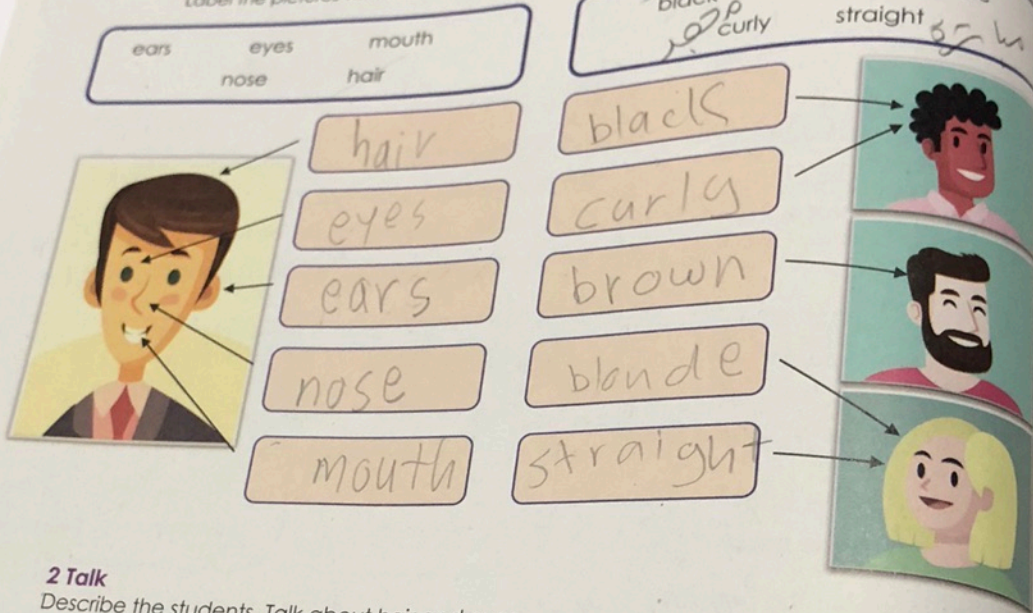 ears eyes mouth
nose hair
curly straight
hair
eyes
ears
nose
mouth
black
curly
brown
blonde
straight
2 Talk
Describe the students. Talk about